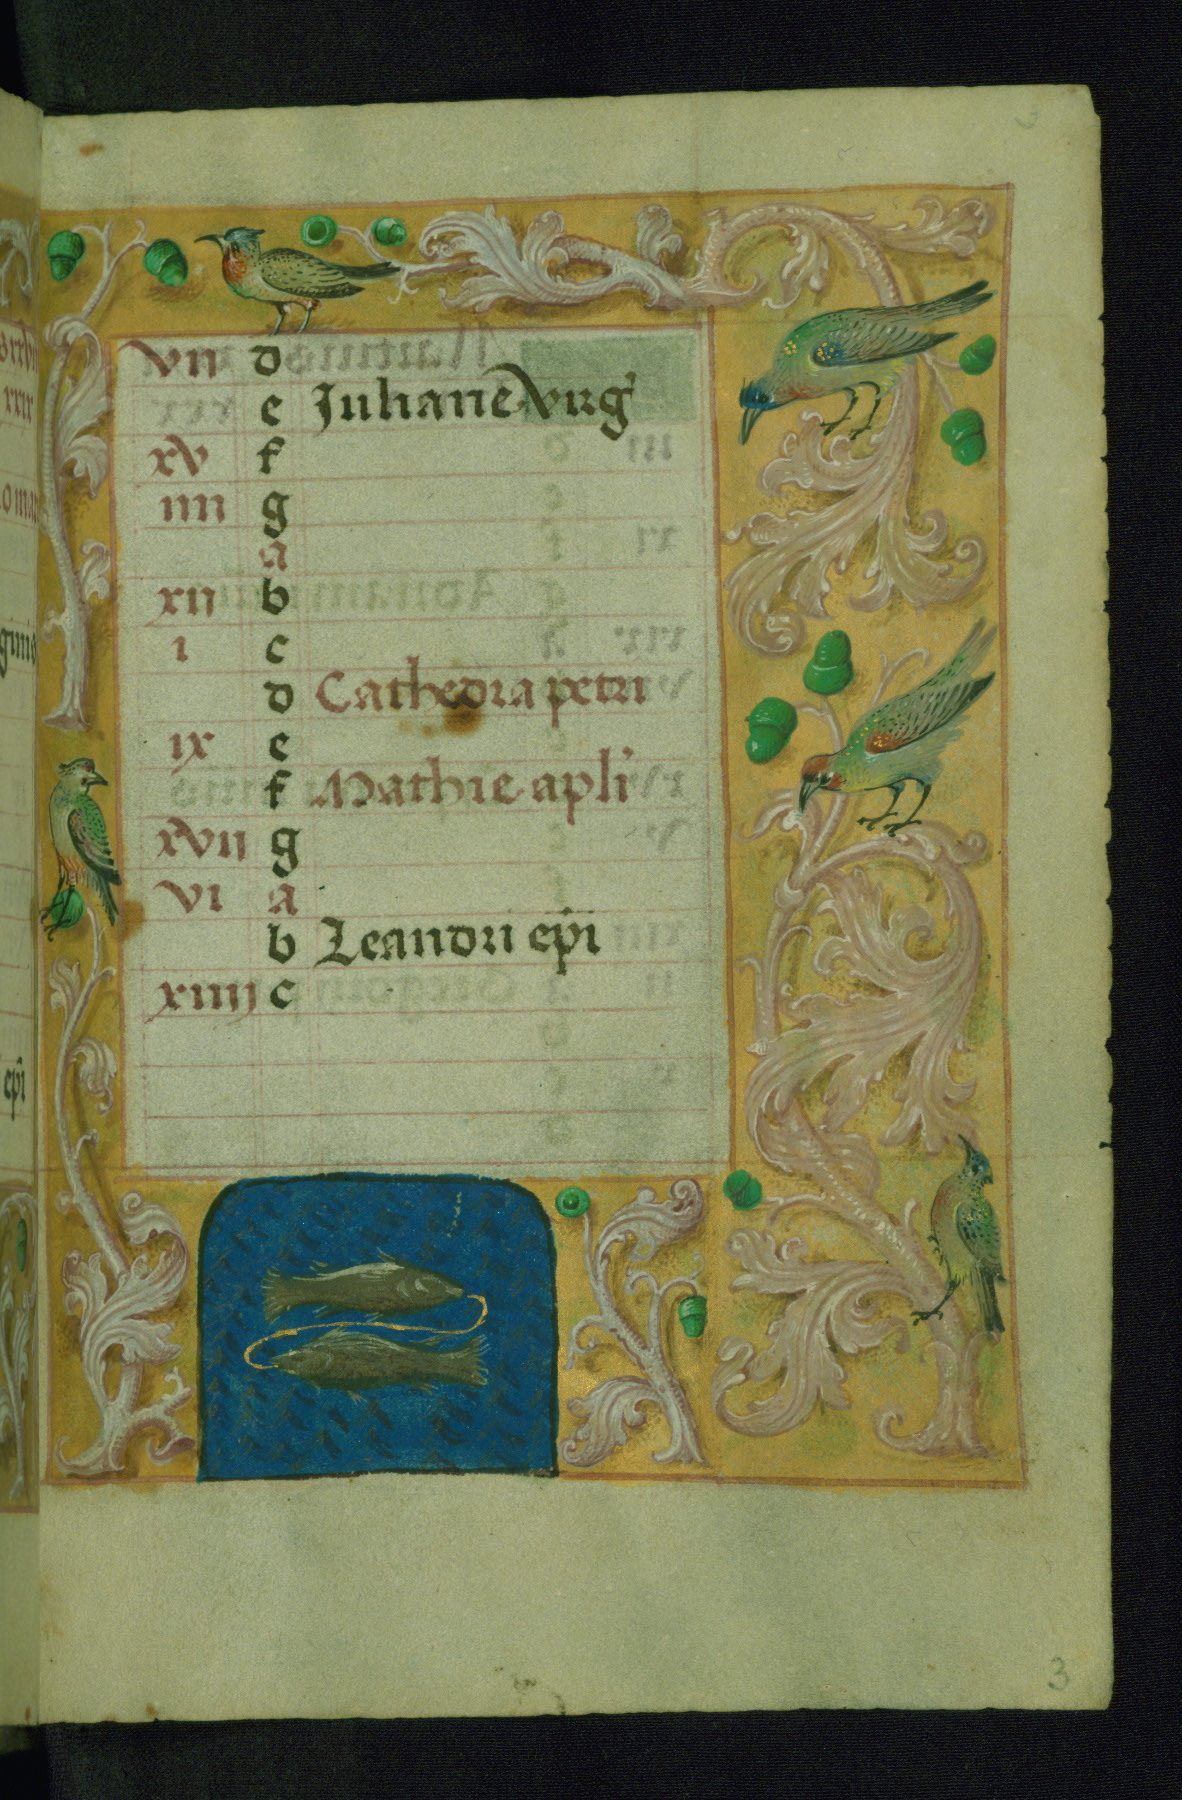 vii d
e Juliane virg'
xv f
iiii g
a
xii b
i c
d Cathedra petri
ix e
f Mathie apli'
xvii g
vi a
b Leandri epi
xiiij c
3